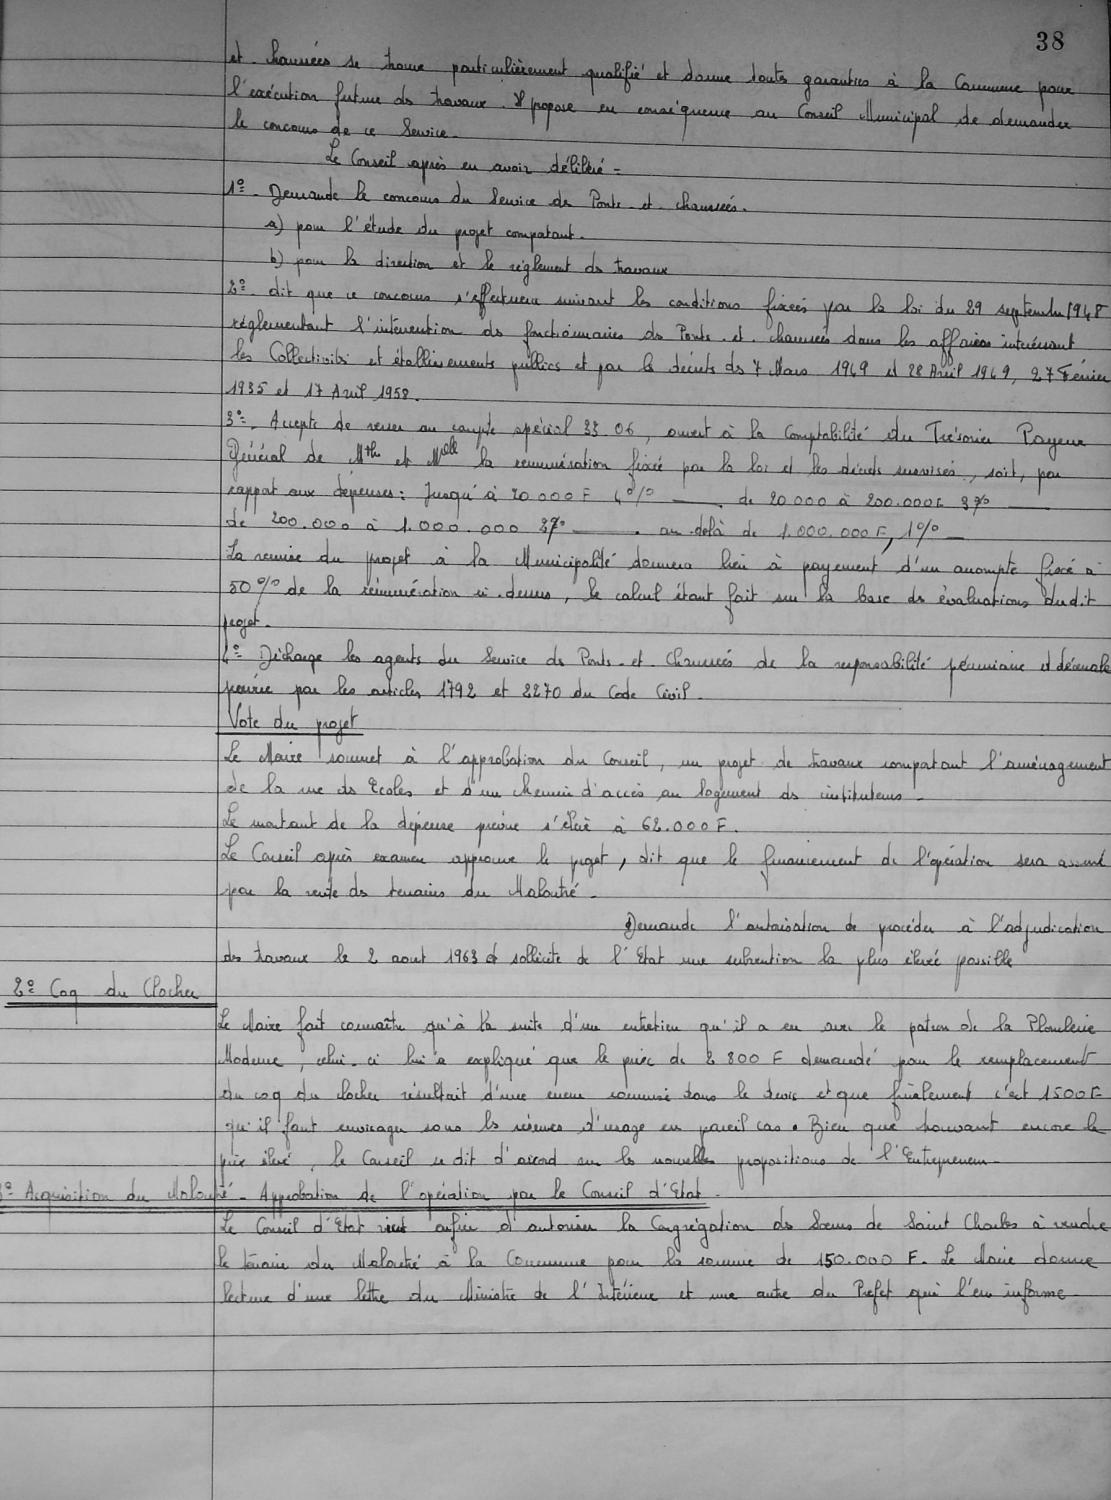 38
et chaussées se trouve particulièrement qualifié et donne toute garanties à la Commune pour
l'exécution future des travaux. Il propose en conséquence au Conseil Municipal de demander
le concours de ce Service.
Le Conseil après en avoir délibéré =
1º - Demande le concours du Service des Ponts-et-chaussées.
a) pour l'étude du projet comportant.
b) pour la direction et le règlement des travaux
2º. dit que ce concours s'effectuera suivant les conditions fixées par la loi du 29 septembre 1948
réglementant l'intervention des fonctionnaires des Ponts-et-chaussées dans les affaires intéressant
les Collectivités et établissements publics et par les décrets des 7 Mars 1949 et 28 Avril 1949, 27 Février
1935 et 17 Avril 1958.
3º. Accepte de verser au compte spécial 33.06, ouvert à la Comptabilité du Trésorier Payeur
Général de Mthe et Mlle la rémunération fixée par la loi et les décrets susvisés, soit, par
rapport aux dépenses: Jusqu'à 20.000 F 4% — de 20.000 à 200.000F 3% —
de 200.000 à 1.000.000 2% — . au delà de 1.000.000 F, 1% —
La remise du projet à la Municipalité donnera lieu à payement d'un acompte fixé à
50% de la rémunération ci-dessus, le calcul étant fait sur la base des évaluations dudit
projet.
4º Décharge les agents du Service des Ponts-et-Chaussées de la responsabilité pécuniaire et décennale
prévue par les articles 1792 et 2270 du Code Civil.
Vote du projet
Le Maire soumet à l'approbation du Conseil, un projet de travaux comportant l'aménagement
de la rue des Ecoles et d'un chemin d'accès au logement des instituteurs -
Le montant de la dépense prévue s'élève à 62.000 F.
Le Conseil après examen approuve le projet, dit que le financement de l'opération sera assuré
par la vente des terrains du Maloutré -
Demande l'autorisation de procéder à l'adjudication
des travaux le 2 aout 1963 et sollicite de l'Etat une subvention la plus élevée possible
2º Coq du Clocher
Le Maire fait connaître qu'à la suite d'un entretien qu'il a eu avec le patron de la Plomberie
Moderne, celui-ci lui a expliqué que le prix de 2 800 F demandé pour le remplacement
du coq du clocher résultait d'une erreur commise dans le devis et que finalement c'est 1500 F
qu'il faut envisager sous les réserves d'usage en pareil cas. Bien que trouvant encore le
prix élevé, le Conseil se dit d'accord sur les nouvelles propositions de l'Entrepreneur -
3º Acquisition du Maloutré - Approbation de l'opération par le Conseil d'Etat -
Le Conseil d'Etat vient enfin d'autoriser la Congrégation des Soeurs de Saint Charles à vendre
le terrain du Maloutré à la Commune pour la somme de 150.000 F. Le Maire donne
lecture d'une lettre du Ministre de l'Intérieur et une autre du Préfet qui l'en informe.